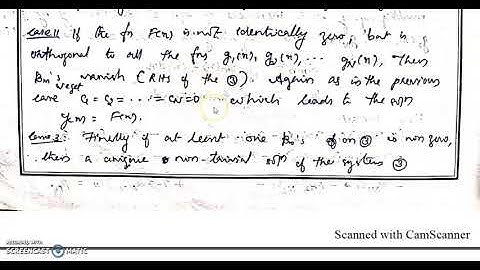 Case II If the fn F(x) is not identically zero, but is
orthogonal to all the fns g₁(x), g₂(x), ... gₙ(x), then
βm's vanish (RHS of the ③). Again as in the previous
we get
case c₁ = c₂ = ... = cₙ = 0 which leads to the solⁿ
y(x) = F(x).
Case 3: Finally if at least one βm's on ③ is non zero,
then a unique non-trivial solⁿ of the system ③
Scanned with CamScanner
RECORDED WITH
SCREENCAST MATIC